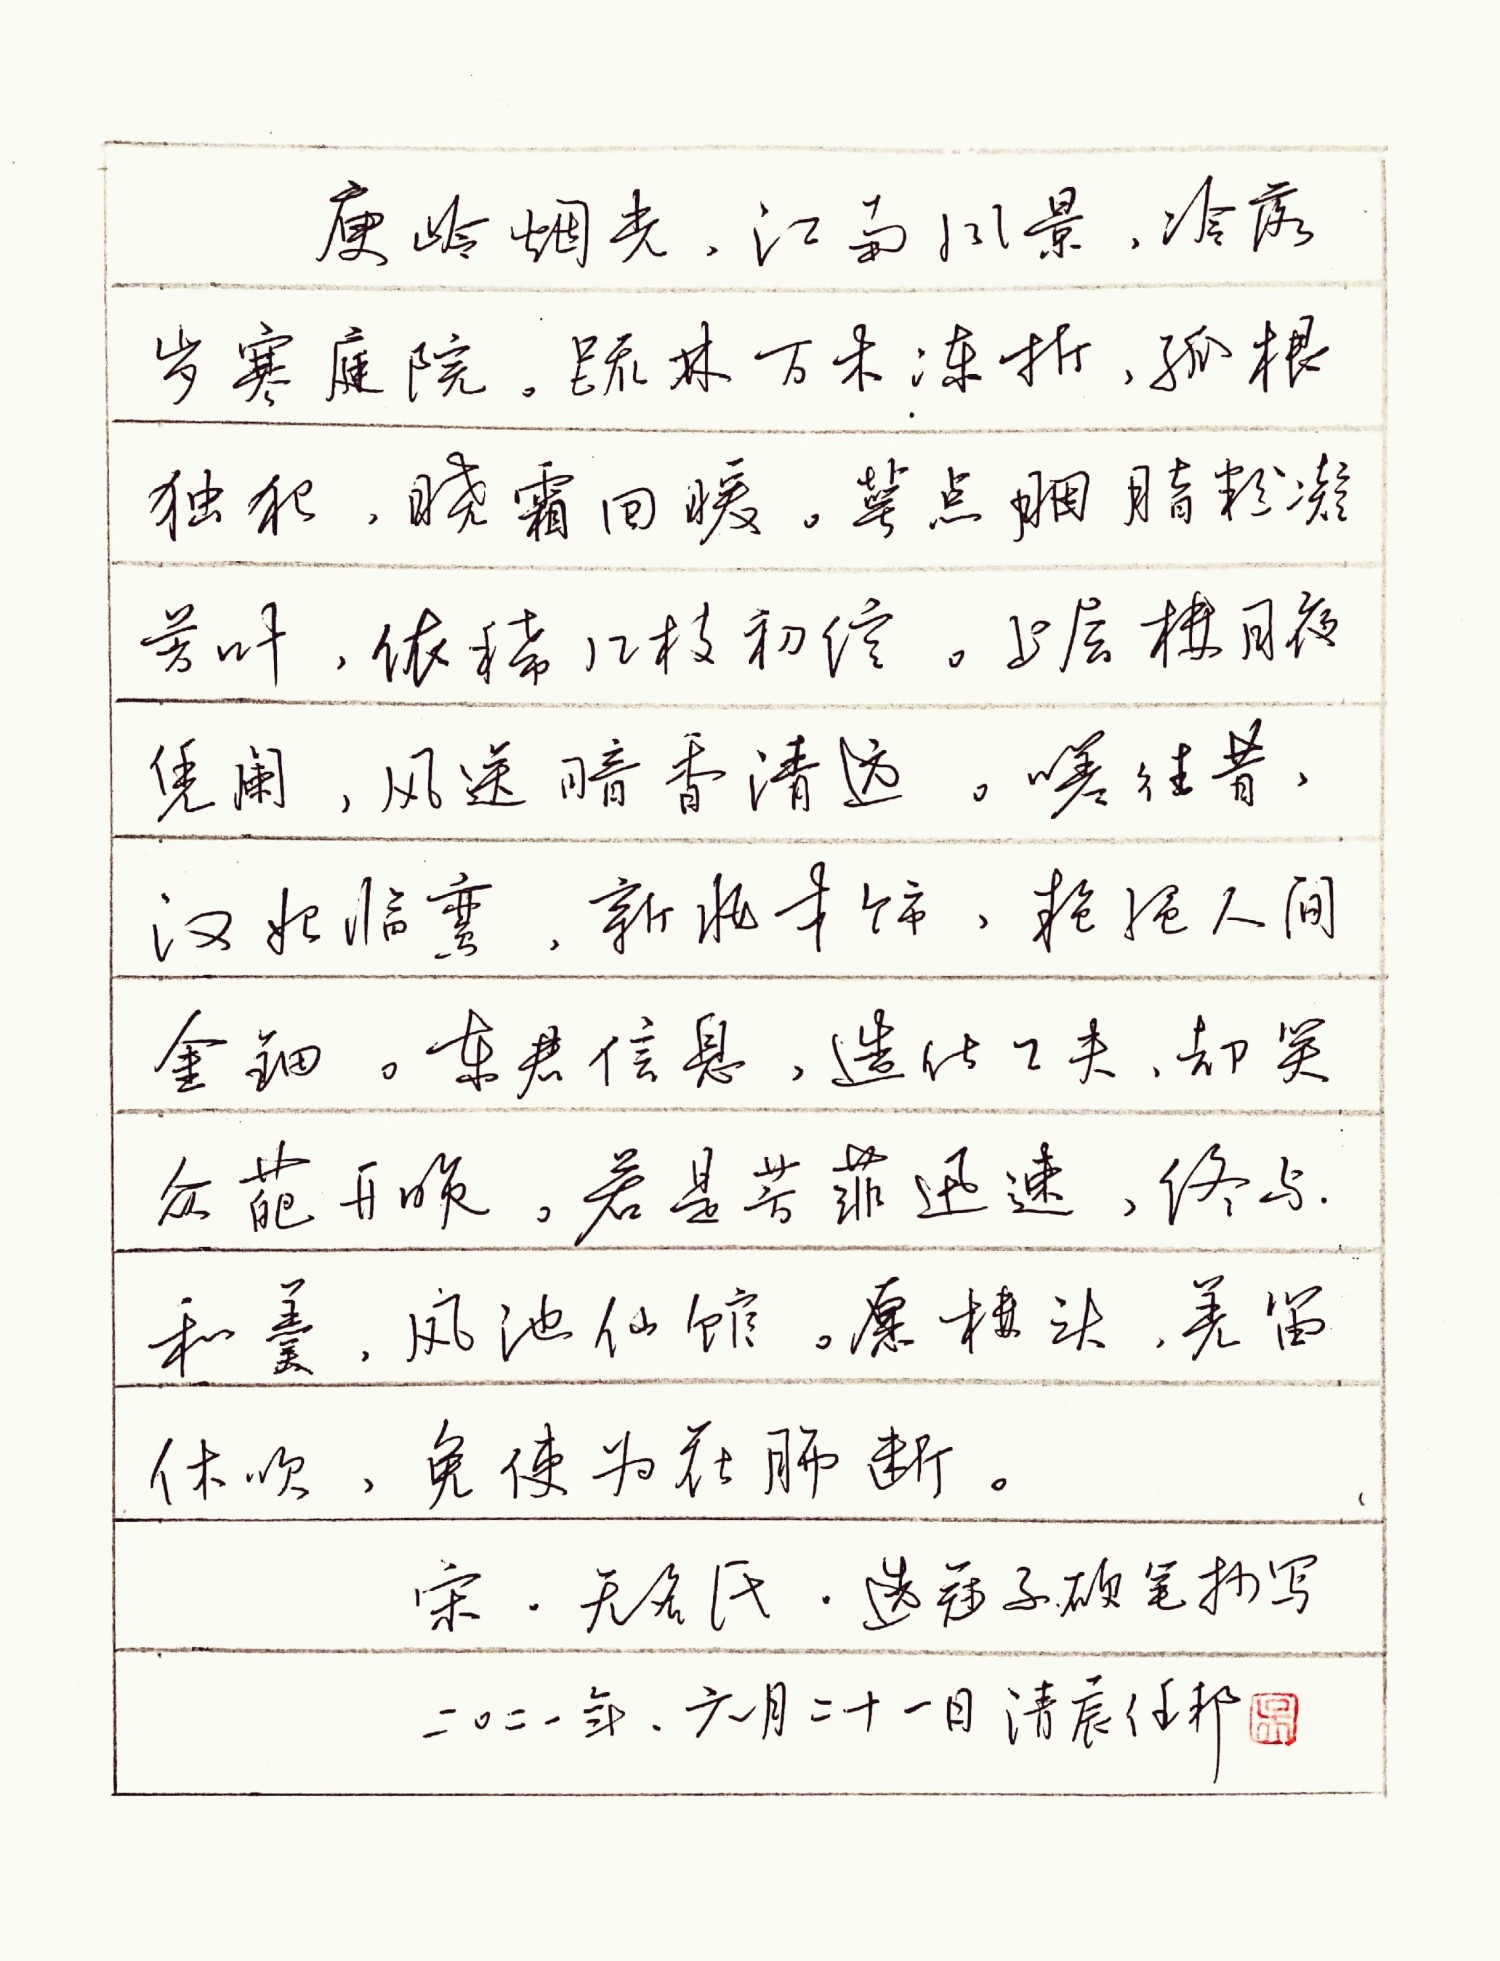 庾岭烟光，江南风景，冷落
岁寒庭院。疏林万木冻折，孤根
独犯，晓霜回暖。萼点胭脂粉凝
芳叶，依稀几枝初绽。上层楼月夜
凭阑，风送暗香清远。嗟往昔，
汉妃临鸾，新妆半饰，艳绝人间
金钿。东君信息，造化工夫，却笑
众葩开晚。若是芳菲迅速，终与
和羹，凤池仙馆。愿楼头，羌笛
休吹，免使为花肠断。
宋·无名氏·选冠子硬笔抄写
二〇二一年、六月二十一日清晨任邦